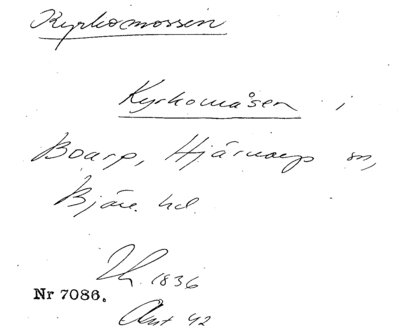 Kyrkomossen
Kyrkomåsen i
Boarp, Hjärnarp sn,
Bjäre hd.
1836
Nr 7086.
42